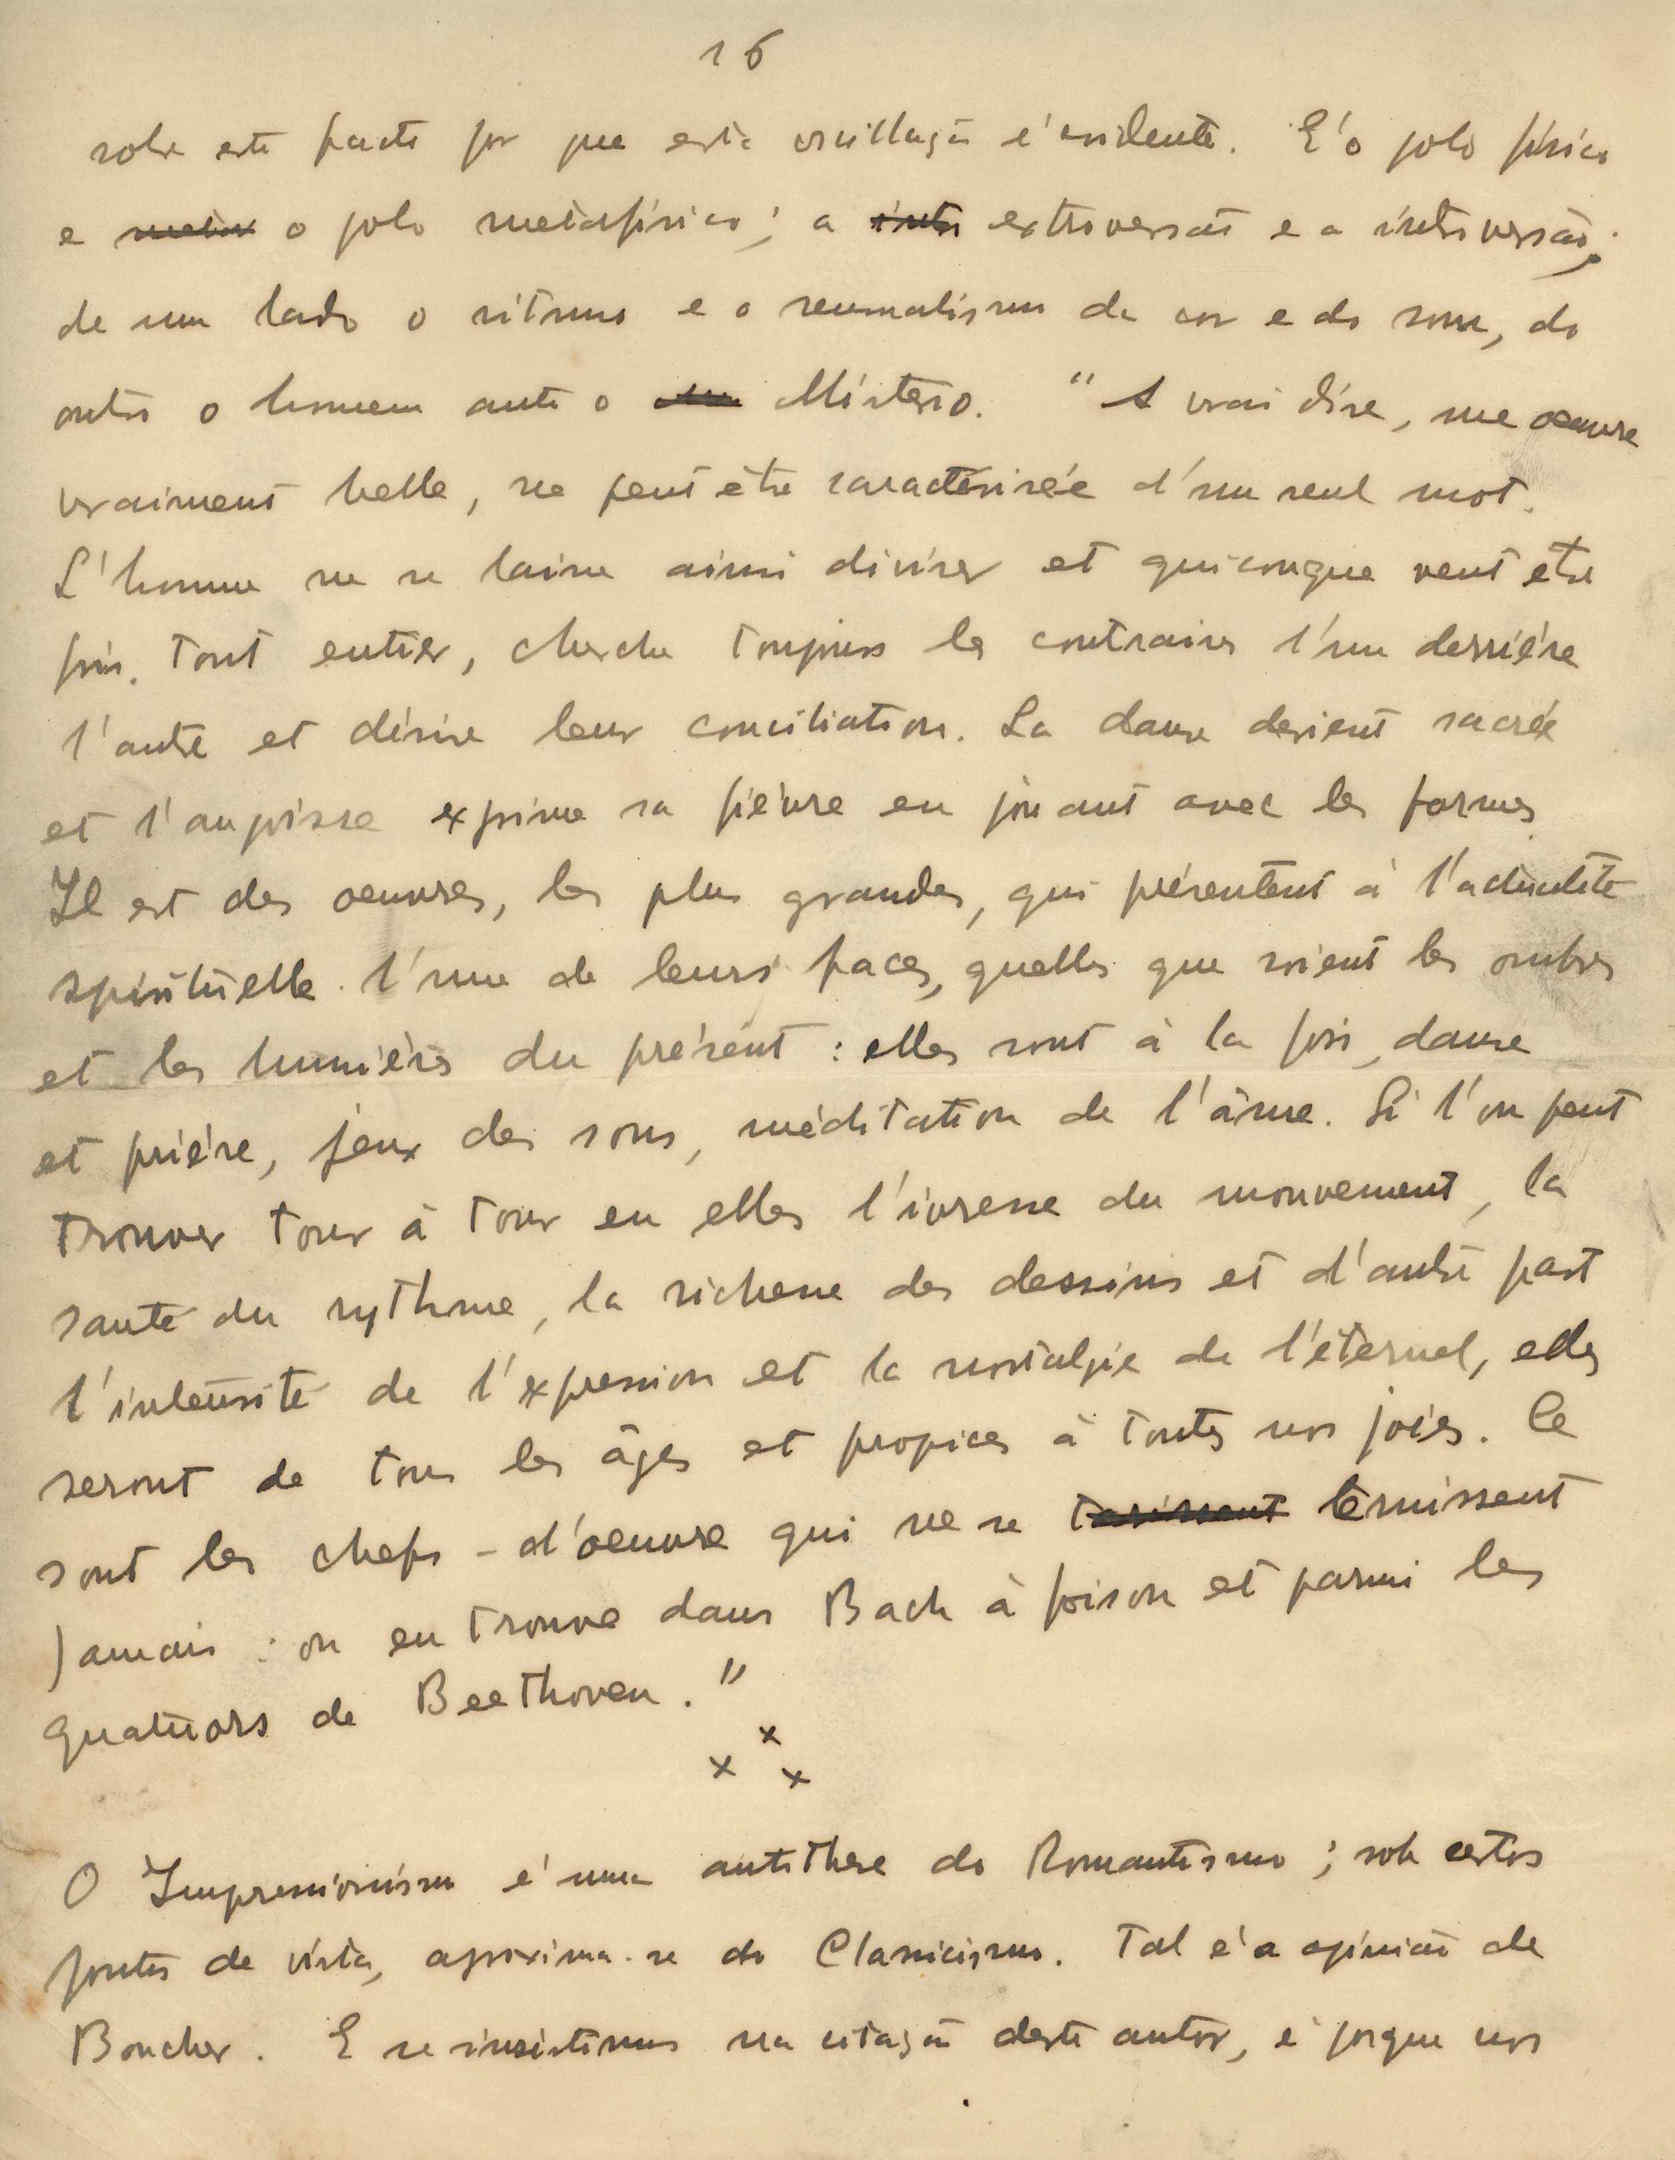 16
sobre este facto por que esta oscillação é evidente. E' o polo físico
e o polo metafísico; a extroversão e a introversão;
de um lado o ritmo e o sensualismo da cor e do som, do
outro o homem ante o Mistério. "A vrai dire, une oeuvre
vraiment belle, ne peut être caractérisée d'un seul mot.
L'homme ne se laisse ainsi diviser et quiconque veut être
pris tout entier, cherche toujours les contraires l'un derrière
l'autre et désire leur conciliation. La danse devient sacrée
et l'angoisse exprime sa fièvre en jouant avec les formes.
Il est des oeuvres, les plus grandes, qui présentent à l'actualité
spirituelle l'une de leurs faces, quelles que soient les ombres
et les lumières du présent: elles sont à la fois, danse
et prière, jeux des sons, méditation de l'âme. Si l'on peut
trouver tour à tour en elles l'ivresse du mouvement, la
santé du rythme, la richesse des dessins et d'autre part
l'intensité de l'expression et la nostalgie de l'éternel, elles
seront de tous les âges et propices à toutes nos joies. Ce
sont les chefs-d'oeuvre qui ne se ternissent
jamais: on en trouve dans Bach à foison et parmi les
quatuors de Beethoven."
x x x
O Impressionismo é uma antithese do Romantismo; sob certos
pontos de vista, aproxima-se do Classicismo. Tal é a opinião de
Boucher. E se insistimos na citação deste autor, é porque nos